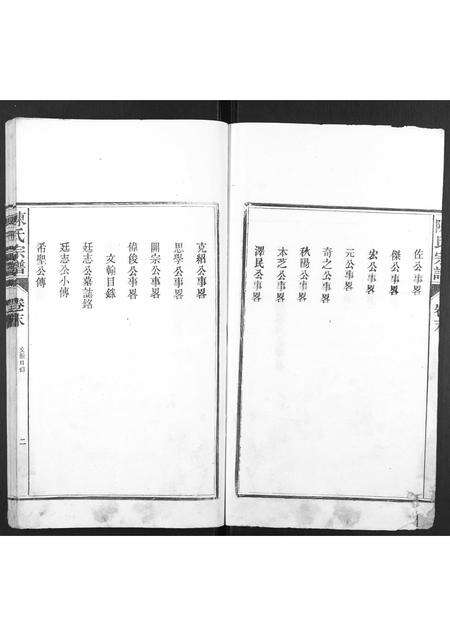 陳氏宗譜
卷末
佐公事畧
傑公事畧
宏公事畧
元公事畧
奇之公事畧
秋陽公事畧
木芝公事畧
澤民公事畧
克紹公事畧
思學公事畧
開宗公事畧
偉俊公事畧
文翰目錄
廷志公墓誌銘
廷志公小傳
希聖公傳
陳氏宗譜
卷末
文翰目錄
二